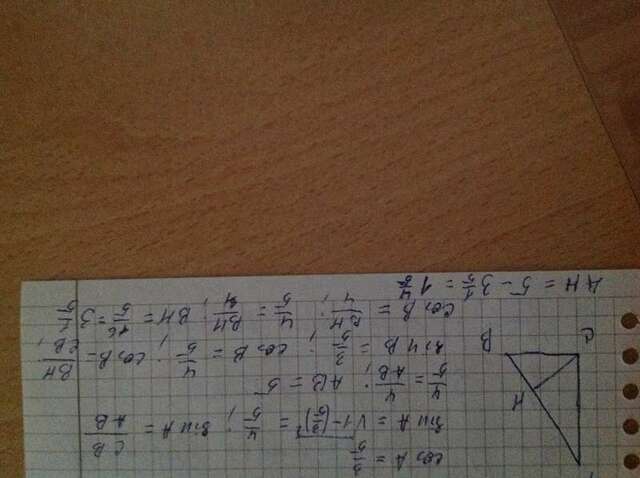 cos A = 3/5
sin A = √1-(3/5)² = 4/5 ; sin A = CB/AB
H
4/5 = 4/AB ; AB = 5
sin B = 3/5 ; cos B = 4/5 ; cos B = BH/CB ;
C B
cos B = BH/4 ; 4/5 = BH/4 ; BH = 16/5 = 3 1/5
AH = 5 - 3 1/5 = 1 4/5